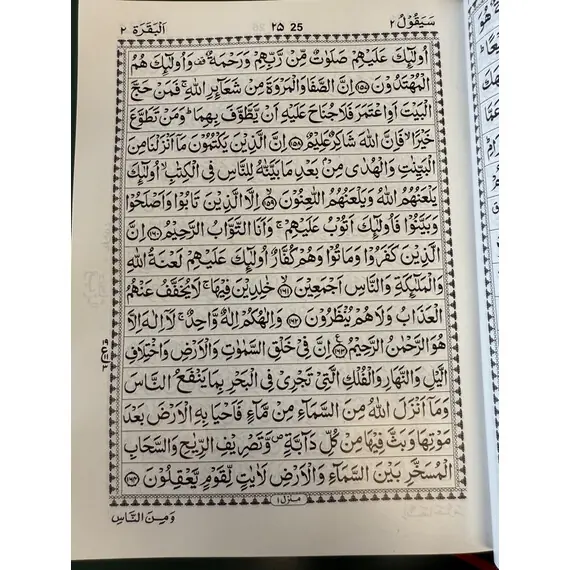 سَيَقُوْلُ ٢ ٢٥ 25 اَلْبَقَرَة ٢
اُولٰٓئِكَ عَلَيْهِمْ صَلَوٰتٌ مِّنْ رَّبِّهِمْ وَرَحْمَةٌ ۫ وَاُولٰٓئِكَ هُمُ
الْمُهْتَدُوْنَ ﴿۱۵۷﴾ اِنَّ الصَّفَا وَالْمَرْوَةَ مِنْ شَعَآئِرِ اللّٰهِ ۚ فَمَنْ حَجَّ
الْبَيْتَ اَوِاعْتَمَرَ فَلَا جُنَاحَ عَلَيْهِ اَنْ يَّطَّوَّفَ بِهِمَا ؕ وَمَنْ تَطَوَّعَ
خَيْرًا ۙ فَاِنَّ اللّٰهَ شَاكِرٌ عَلِيْمٌ ﴿۱۵۸﴾ اِنَّ الَّذِيْنَ يَكْتُمُوْنَ مَاۤ اَنْزَلْنَا مِنَ
الْبَيِّنٰتِ وَالْهُدٰى مِنْۢ بَعْدِ مَا بَيَّنّٰهُ لِلنَّاسِ فِى الْكِتٰبِ ۙ اُولٰٓئِكَ
يَلْعَنُهُمُ اللّٰهُ وَيَلْعَنُهُمُ اللّٰعِنُوْنَ ﴿۱۵۹﴾ اِلَّا الَّذِيْنَ تَابُوْا وَاَصْلَحُوْا
وَبَيَّنُوْا فَاُولٰٓئِكَ اَتُوْبُ عَلَيْهِمْ ۚ وَاَنَا التَّوَّابُ الرَّحِيْمُ ﴿۱۶۰﴾ اِنَّ
الَّذِيْنَ كَفَرُوْا وَمَاتُوْا وَهُمْ كُفَّارٌ اُولٰٓئِكَ عَلَيْهِمْ لَعْنَةُ اللّٰهِ
وَالْمَلٰٓئِكَةِ وَالنَّاسِ اَجْمَعِيْنَ ﴿۱۶۱﴾ خٰلِدِيْنَ فِيْهَا ۚ لَا يُخَفَّفُ عَنْهُمُ
الْعَذَابُ وَلَا هُمْ يُنْظَرُوْنَ ﴿۱۶۲﴾ وَاِلٰهُكُمْ اِلٰهٌ وَّاحِدٌ ۚ لَاۤ اِلٰهَ اِلَّا
هُوَ الرَّحْمٰنُ الرَّحِيْمُ ﴿۱۶۳﴾ اِنَّ فِىْ خَلْقِ السَّمٰوٰتِ وَالْاَرْضِ وَاخْتِلَافِ
الَّيْلِ وَالنَّهَارِ وَالْفُلْكِ الَّتِىْ تَجْرِىْ فِى الْبَحْرِ بِمَا يَنْفَعُ النَّاسَ
وَمَاۤ اَنْزَلَ اللّٰهُ مِنَ السَّمَآءِ مِنْ مَّآءٍ فَاَحْيَا بِهِ الْاَرْضَ بَعْدَ
مَوْتِهَا وَبَثَّ فِيْهَا مِنْ كُلِّ دَآبَّةٍ ۪ وَّتَصْرِيْفِ الرِّيٰحِ وَالسَّحَابِ
الْمُسَخَّرِ بَيْنَ السَّمَآءِ وَالْاَرْضِ لَاٰيٰتٍ لِّقَوْمٍ يَّعْقِلُوْنَ ﴿۱۶۴﴾
منزل ۱
وَمِنَ النَّاسِ